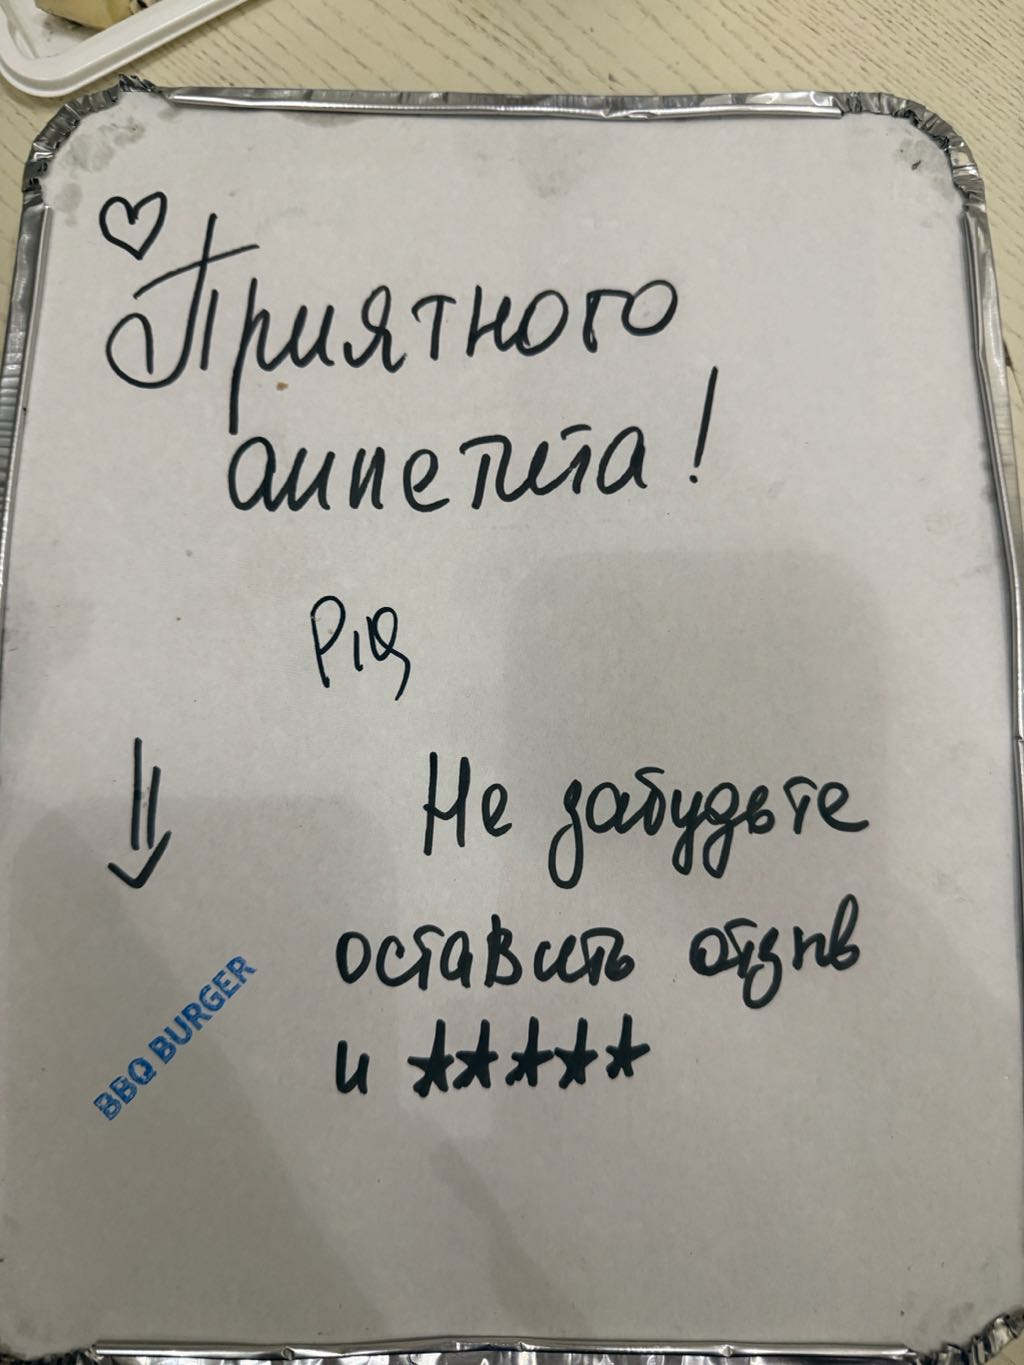 Приятного
аппетита!
Не забудьте
оставить отзыв
и ★★★★★
BBQ BURGER